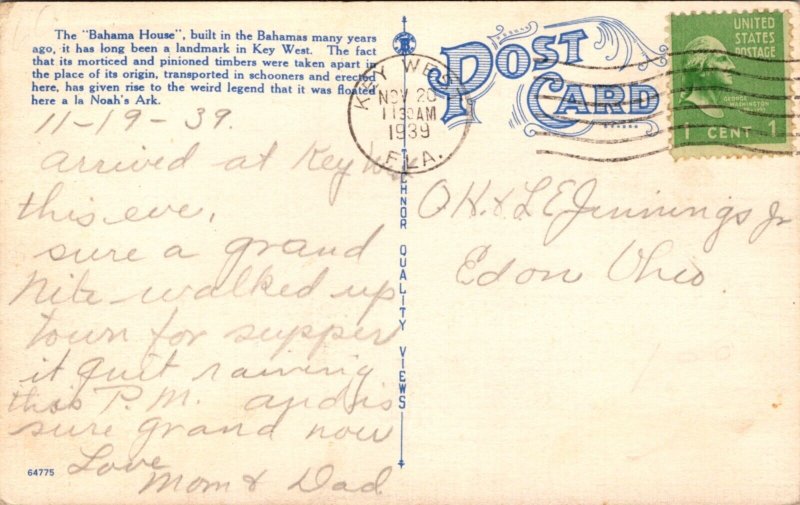 The "Bahama House", built in the Bahamas many years
ago, it has long been a landmark in Key West. The fact
that its morticed and pinioned timbers were taken apart in
the place of its origin, transported in schooners and erected
here, has given rise to the weird legend that it was floated
here a la Noah's Ark.
11-19-39.
arrived at Key W
this eve.
sure a grand
nite walked up
town for supper
it quit raining
this P.M. and is
sure grand now
Love
Mom & Dad
64775
TICHNOR QUALITY VIEWS
POST
CARD
KEY WEST
NOV 20
11 30 AM
1939
FLA.
UNITED
STATES
POSTAGE
GEORGE
WASHINGTON
1 CENT 1
O.K. & L E Jennings Jr
Edon Ohio.